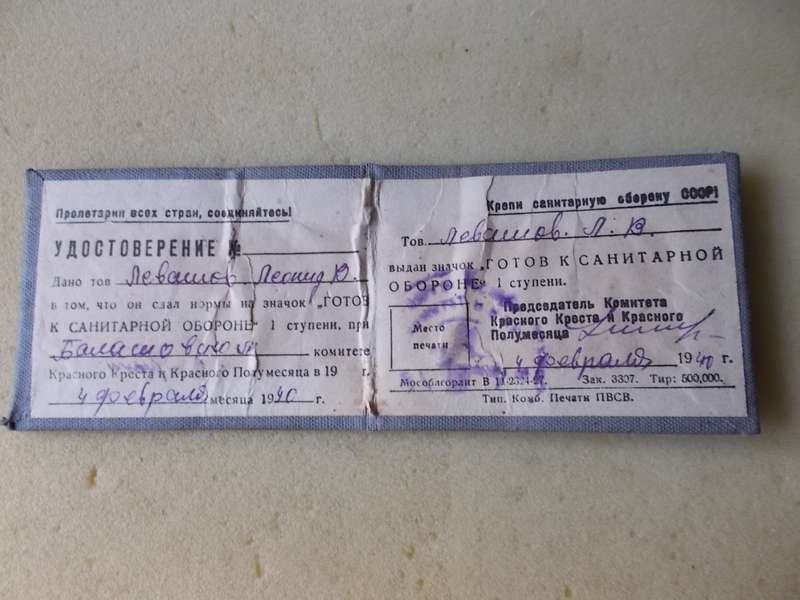 Пролетарии всех стран, соединяйтесь!
УДОСТОВЕРЕНИЕ №
Дано тов Левашов Леонид В.
в том, что он сдал нормы на значок „ГОТОВ
К САНИТАРНОЙ ОБОРОНЕ“ 1 ступени, при
комитете
Красного Креста и Красного Полумесяца в 19 г.
4 февраля месяца 1940 г.
Крепи санитарную оборону СССР!
Тов. Левашов. Л. В.
выдан значок „ГОТОВ К САНИТАРНОЙ
ОБОРОНЕ“ 1 ступени.
Председатель Комитета
Красного Креста и Красного
Полумесяца
Место
печати
4 февраля 1940 г.
Мособлгорлит В Зак. 3307. Тир: 500,000.
Тип. Комб. Печати ПВСВ.